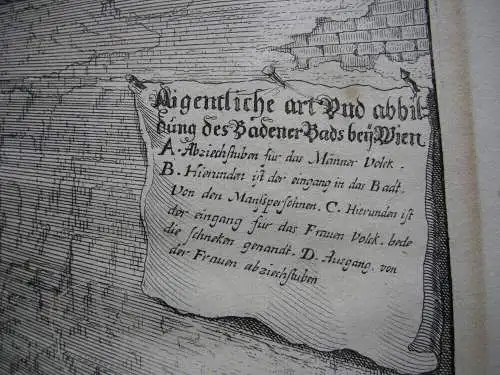 Aigentliche art Vnd abbil-
dung des Badener Bads beÿ Wien
A. Abziechstuben für das Männer Volck.
B. Hierunden ist der eingang in das Badt.
Von den Manßpersohnen. C. Hierunden ist
der eingang für das Frauen Volck. bede
die schneken genandt. D. Ausgang. von
der Frauen abziechstuben